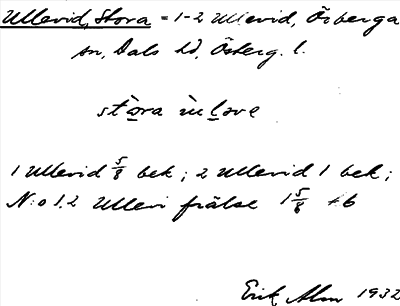 Ullevid, Stora = 1-2 Ullevid, Örberga
sn, Dals hd, Österg. l.
stòra ùlove
1 Ullevid 5/8 bek; 2 Ullevid 1 bek;
N:o 1.2 Ullevi frälse 1 5/8
Erik Alm 1932